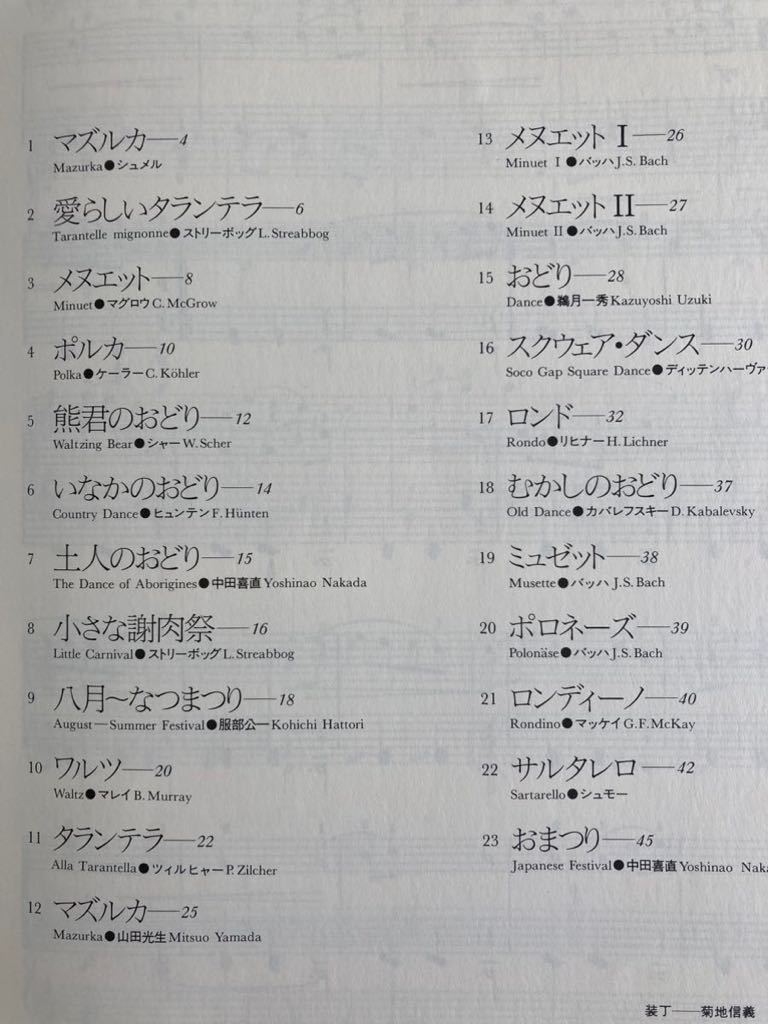 1 マズルカ——4
Mazurka●シュメル
2 愛らしいタランテラ——6
Tarantelle mignonne●ストリーボッグL. Streabbog
3 メヌエット——8
Minuet●マグロウC. McGrow
4 ポルカ——10
Polka●ケーラーC. Köhler
5 熊君のおどり——12
Waltzing Bear●シャーW. Scher
6 いなかのおどり——14
Country Dance●ヒュンテンF. Hünten
7 土人のおどり——15
The Dance of Aborigines●中田喜直Yoshinao Nakada
8 小さな謝肉祭——16
Little Carnival●ストリーボッグL. Streabbog
9 八月〜なつまつり——18
August—Summer Festival●服部公一Kohichi Hattori
10 ワルツ——20
Waltz●マレイB. Murray
11 タランテラ——22
Alla Tarantella●ツィルヒャーP. Zilcher
12 マズルカ——25
Mazurka●山田光生Mitsuo Yamada
13 メヌエット I——26
Minuet I●バッハJ.S. Bach
14 メヌエット II——27
Minuet II●バッハJ.S. Bach
15 おどり——28
Dance●鵜月一秀Kazuyoshi Uzuki
16 スクウェア・ダンス——30
Soco Gap Square Dance●ディッテンハーヴァ
17 ロンド——32
Rondo●リヒナーH. Lichner
18 むかしのおどり——37
Old Dance●カバレフスキーD. Kabalevsky
19 ミュゼット——38
Musette●バッハJ.S. Bach
20 ポロネーズ——39
Polonäse●バッハJ.S. Bach
21 ロンディーノ——40
Rondino●マッケイG.F. McKay
22 サルタレロ——42
Sartarello●シュモー
23 おまつり——45
Japanese Festival●中田喜直Yoshinao Naka
装丁——菊地信義